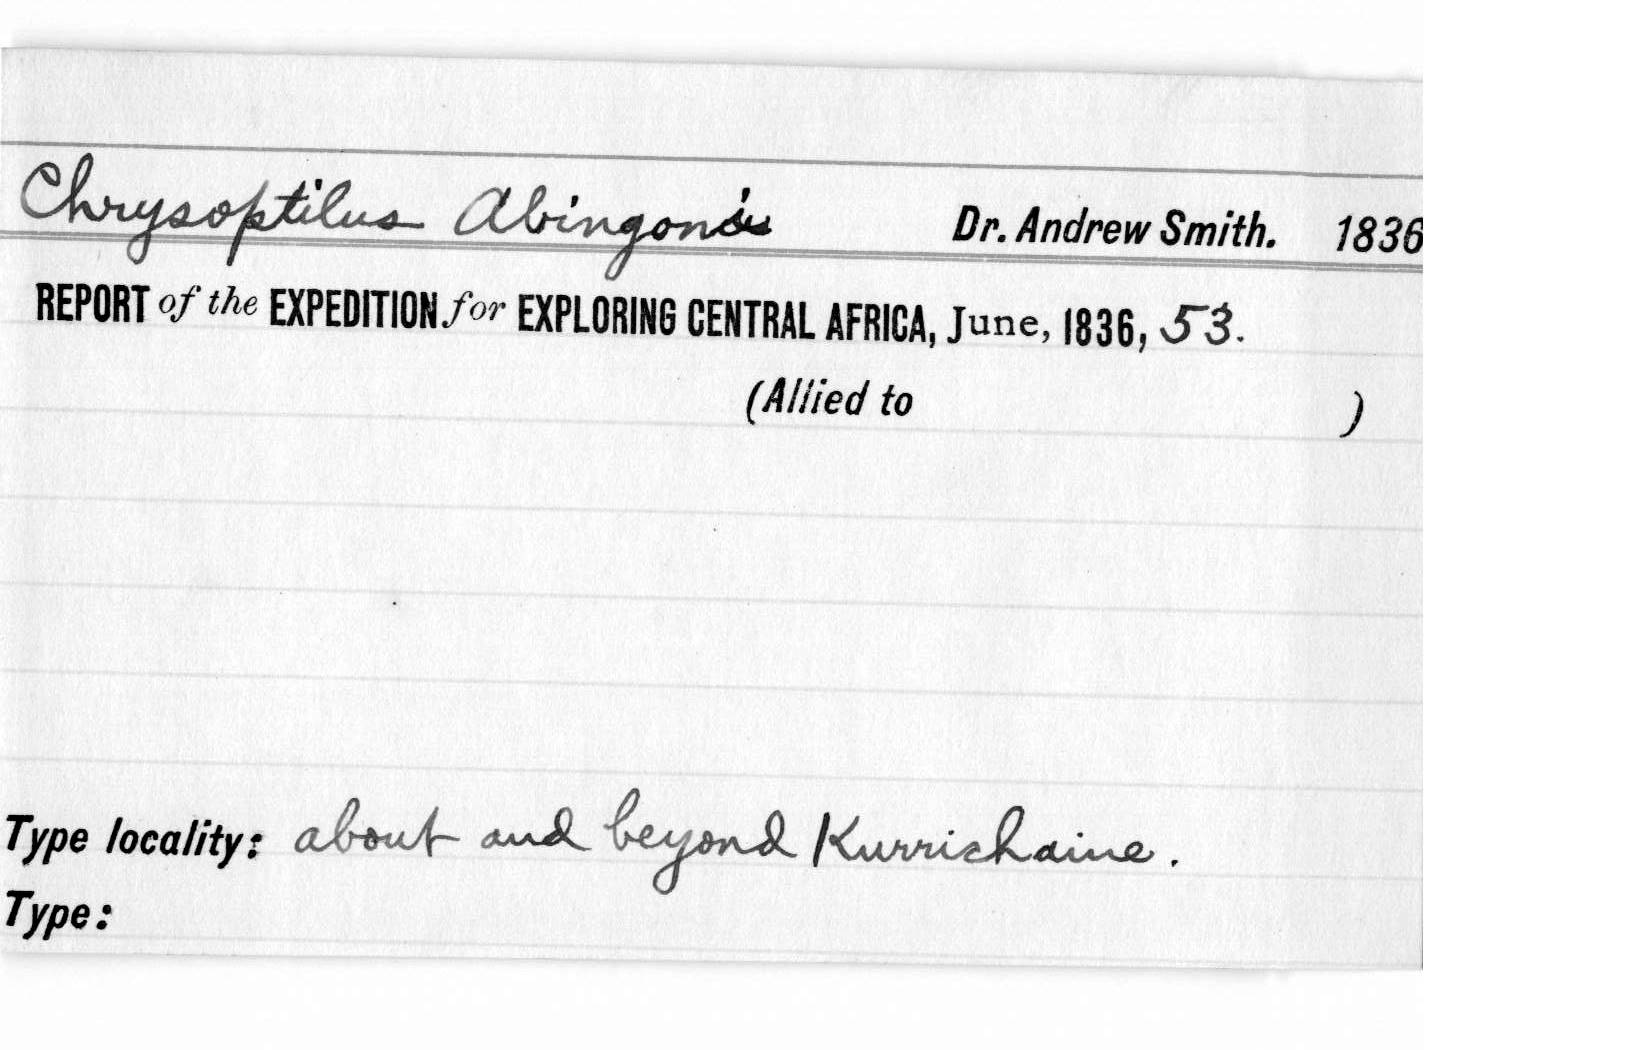 Chrysoptilus Abingonius Dr. Andrew Smith. 1836
REPORT of the EXPEDITION for EXPLORING CENTRAL AFRICA, June, 1836, 53.
(Allied to )
Type locality: about and beyond Kurrichaine.
Type: